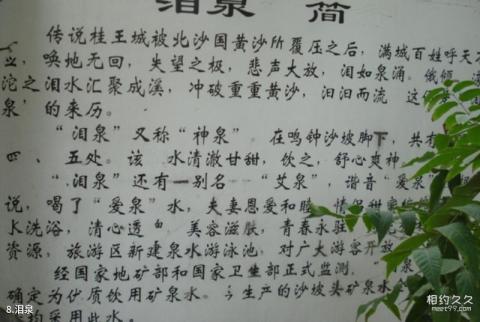 泪泉 简
传说桂王城被北沙国黄沙所覆压之后，满城百姓呼天
应，唤地无回，失望之极，悲声大放，泪如泉涌。俄顷
沱之泪水汇聚成溪，冲破重重黄沙，汩汩而流 这
泉'的来历。
"泪泉"又称"神泉" 在鸣钟沙坡脚下，共有
四、五处。该 水清澈甘甜，饮之，舒心爽神
"泪泉"还有一别名 "艾泉"，谐音"爱泉"
说，喝了"爱泉"水，夫妻恩爱和睦，情侣甜蜜
水洗浴，清心透 美容滋肤，青春永驻
资源，旅游区新建泉水游泳池，对广大游客开放
经国家地矿部和国家卫生部正式监测， 泉
确定为优质饮用矿泉水。 生产的沙坡头矿泉水
均采用此水。
相约久久
www.meet99.com
8.泪泉